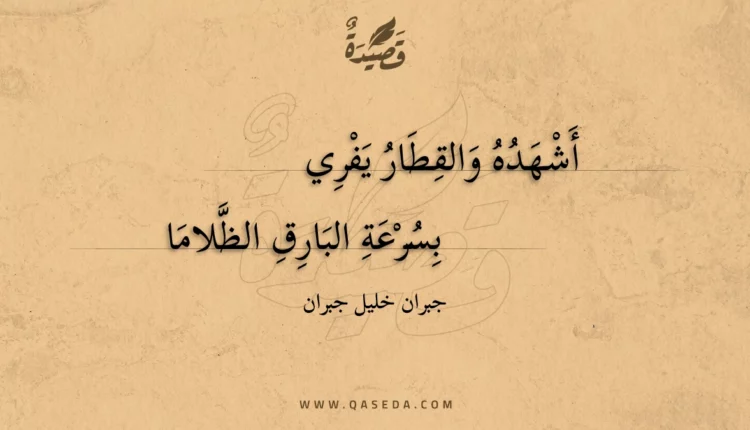 قَصِيدَةٌ
أَشْهَدُهُ وَالقِطَارُ يَفْرِي
بِسُرْعَةِ البَارِقِ الظَّلامَا
جبران خليل جبران
WWW.QASEDA.COM